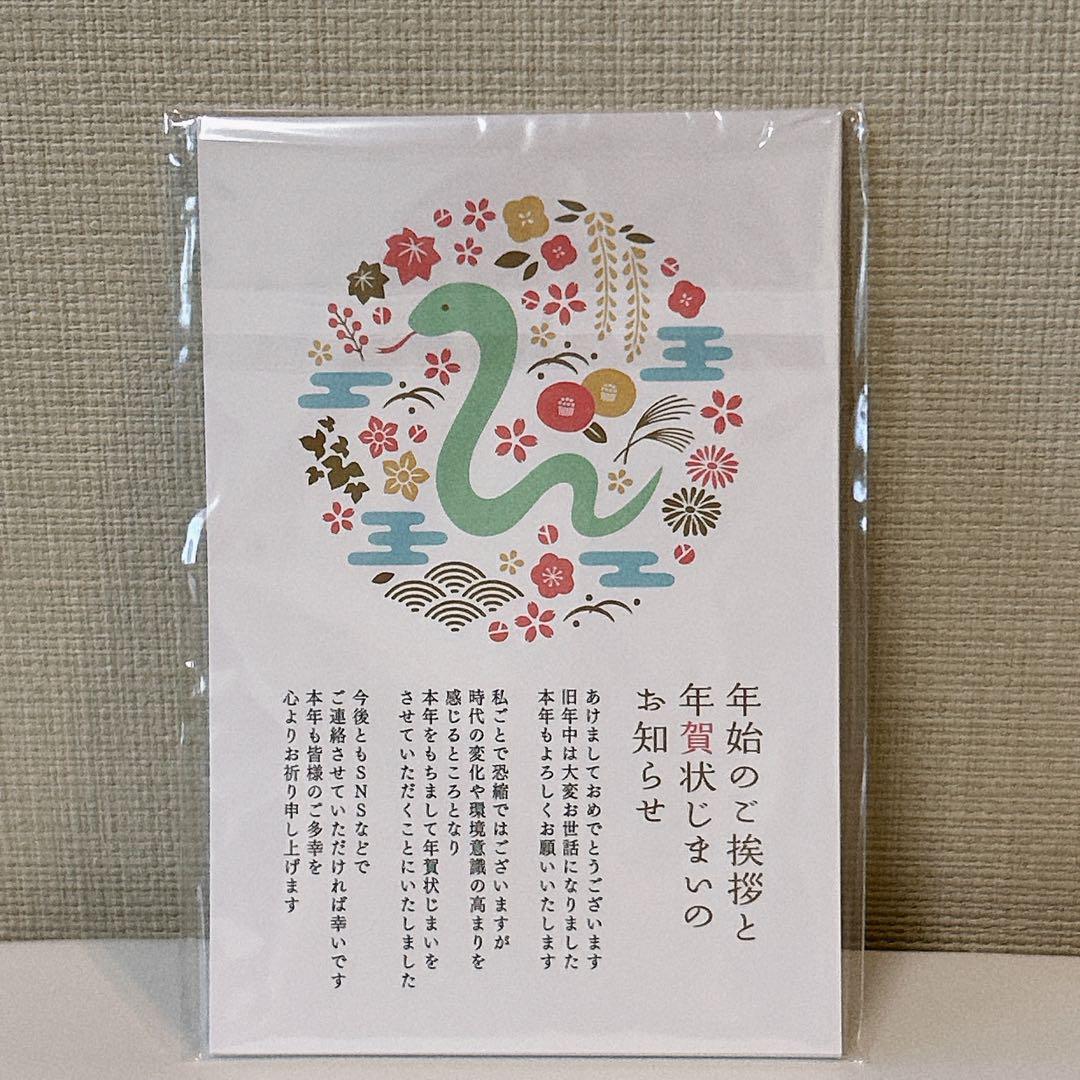 年始のご挨拶と
年賀状じまいの
お知らせ
あけましておめでとうございます
旧年中は大変お世話になりました
本年もよろしくお願いいたします
私ごとで恐縮ではございますが
時代の変化や環境意識の高まりを
感じるところとなり
本年をもちまして年賀状じまいを
させていただくことにいたしました
今後ともSNSなどで
ご連絡させていただければ幸いです
本年も皆様のご多幸を
心よりお祈り申し上げます